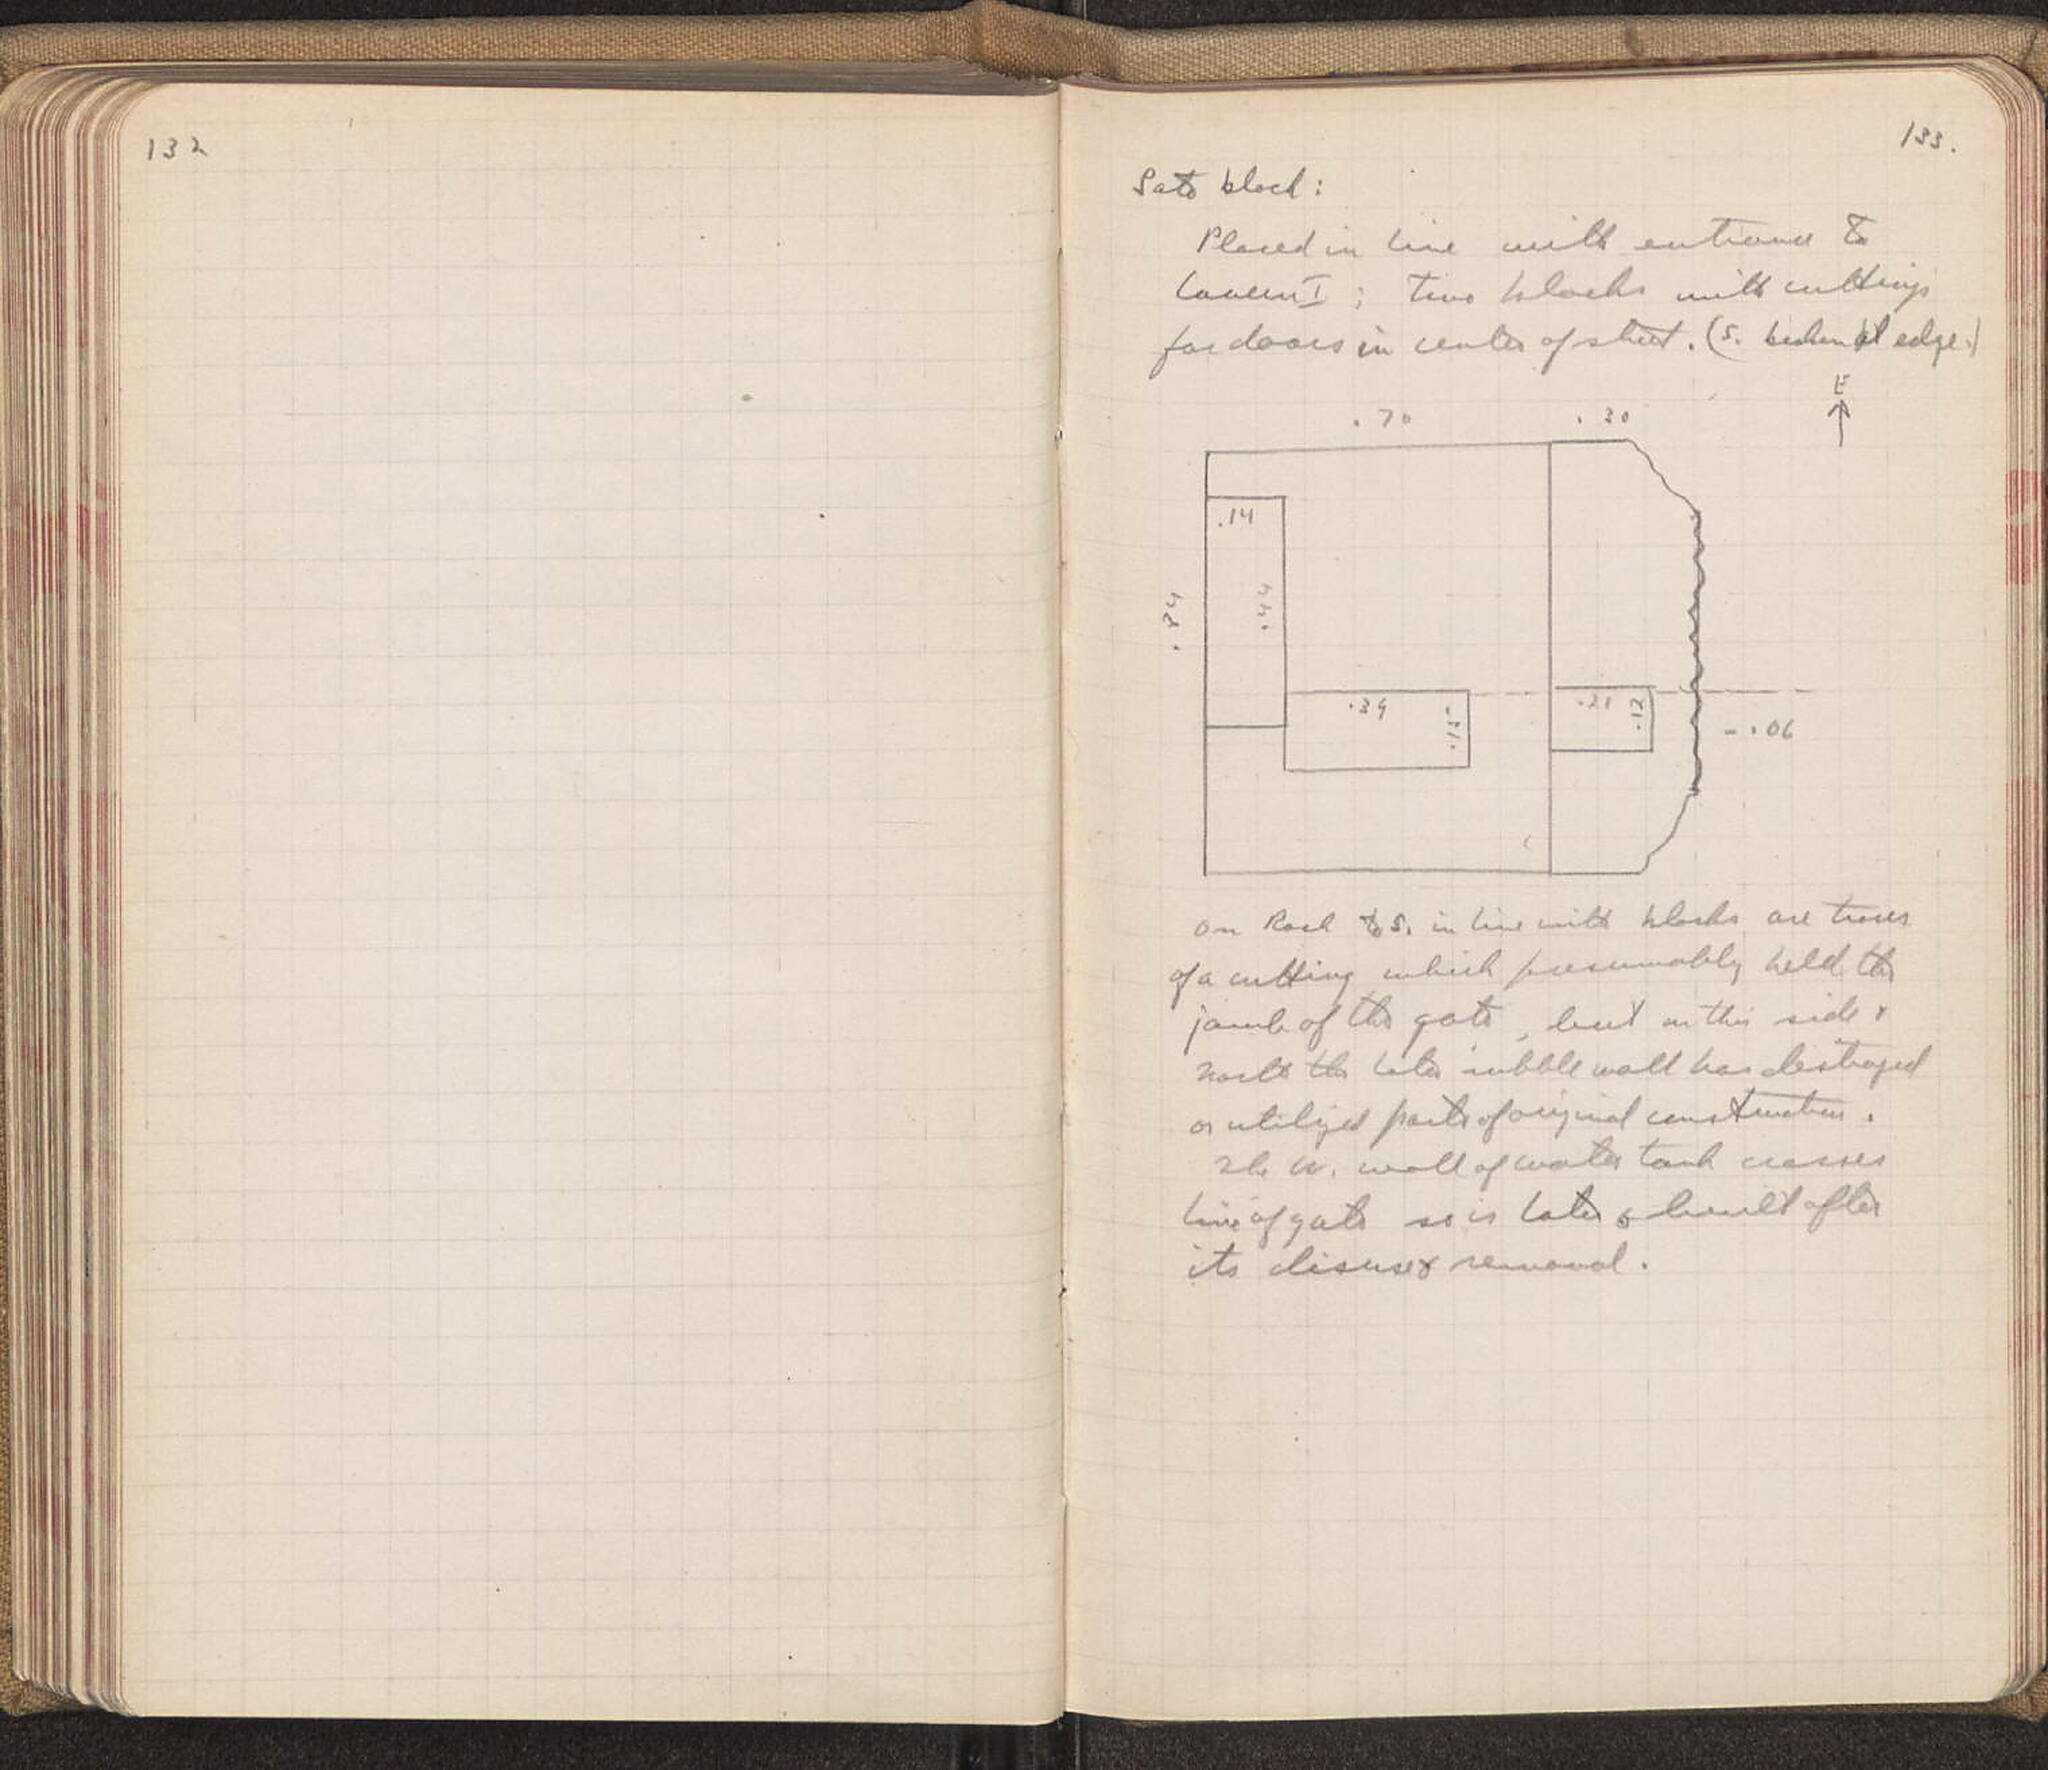 132
133.
Gate block:
Placed in line with entrance to
Cavern I ; two blocks with cuttings
for doors in center of street. (S. broken at edge.)
E
.70
.30
.14
.44
.84
.39
.15
.21
.12
- .06
On Rock to S. in line with blocks are traces
of a cutting which presumably held the
jamb of the gate, but on this side &
north the later rubble wall has destroyed
or utilized parts of original construction.
The W. wall of water tank crosses
line of gate so is later & built after
its disuse & removal.